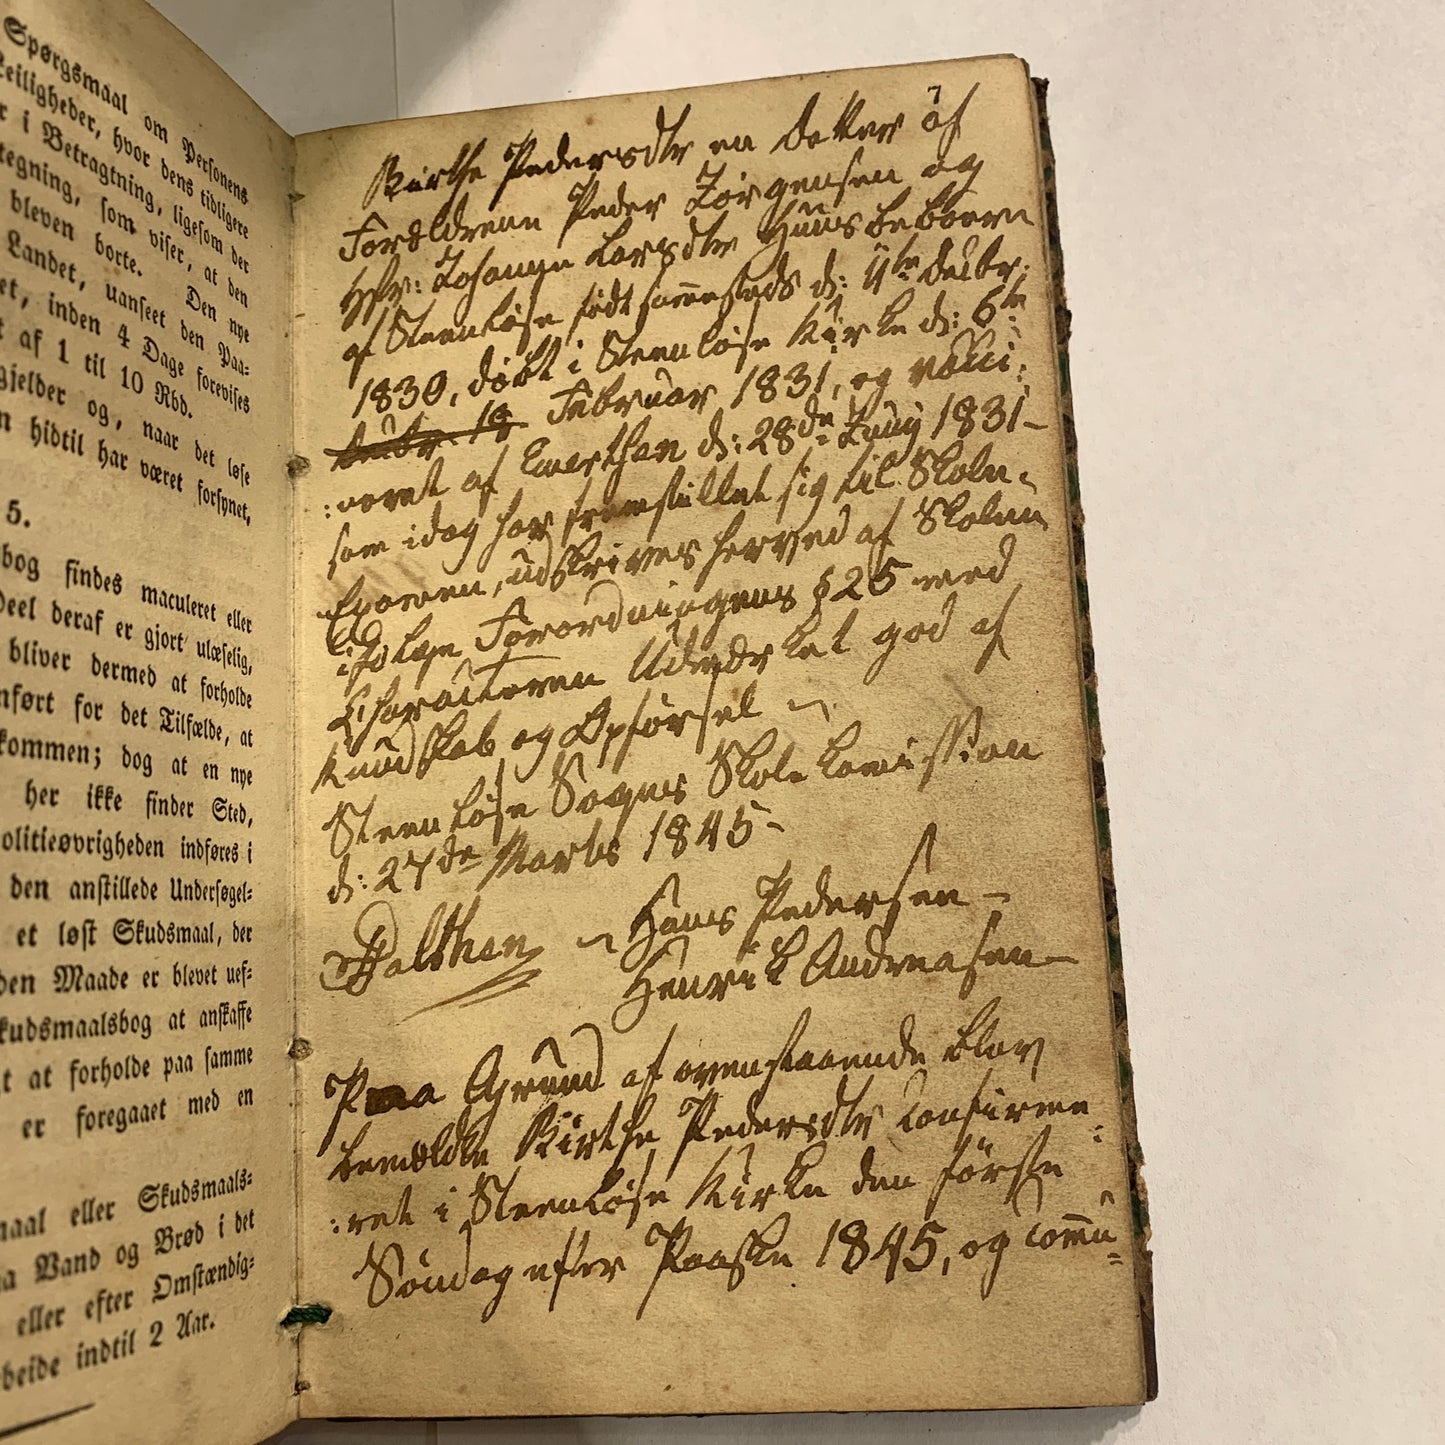 Spørgsmaal om Personens
Leiligheder, hvor dens tidligere
r i Betragtning, ligesom der
tegning, som viser, at den
bleven borte. Den nye
Landet, uanseet den Paa-
et, inden 4 Dage forevises
t af 1 til 10 Rbd.
gjelder og, naar det løse
n hidtil har været forsynet,
5.
bog findes maculeret eller
Deel deraf er gjort ulæselig,
bliver dermed at forholde
nført for det Tilfælde, at
kommen; dog at en nye
her ikke finder Sted,
olitieøvrigheden indføres i
den anstillede Undersøgel-
et løst Skudsmaal, der
den Maade er blevet uef-
kudsmaalsbog at anskaffe
t at forholde paa samme
er foregaaet med en
maal eller Skudsmaals-
a Vand og Brød i det
eller efter Omstændig-
beide indtil 2 Aar.
Kirthe Pedersdtr en Datter af
Forældrene Peder Jörgensen og
Hstr: Johanne Larsdtr Huusbeboere
af Steenløse født sammesteds d: 4de Decbr:
1830, döbt i Steenløse Kirke d: 6te
Februar 1831, og vacci:
:neret af Emerthsen d: 28de Juny 1831-
som idag har fremstillet sig til Skole-
Examen, udskrives herved af Skolen
ifølge Forordningens § 25 med
Characteren Udmærket god af
Kundskab og Opførsel
Steenløse Sogns Skole Commission
d: 27de Marts 1845-
Balthen Hans Pedersen -
Henrik Andreasen-
Paa Grund af ovenstaaende blev
bemeldte Kirthe Pedersdtr Confirme:
:ret i Steenløse Kirke den første
Søndag efter Paaske 1845, og commu=